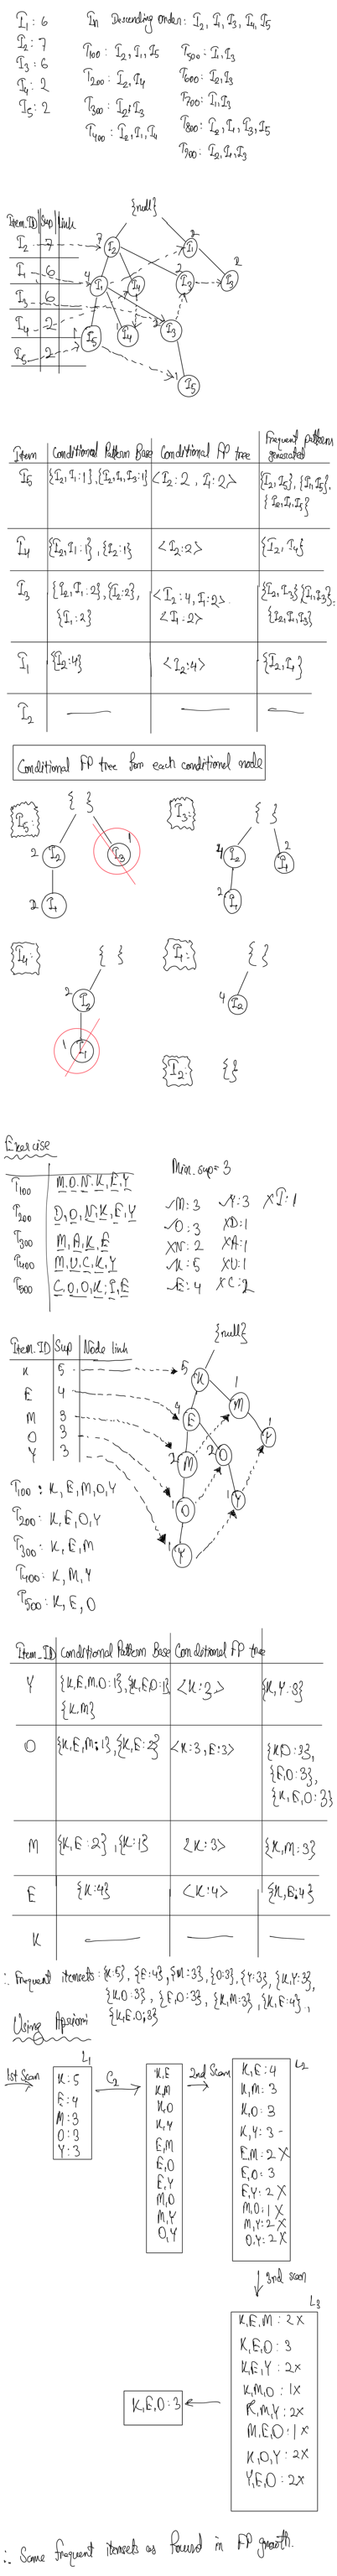 I1: 6
I2: 7
I3: 6
I4: 2
I5: 2
In Descending order: I2, I1, I3, I4, I5
T100: I2, I1, I5
T200: I2, I4
T300: I2, I3
T400: I2, I1, I4
T500: I1, I3
T600: I2, I3
T700: I1, I3
T800: I2, I1, I3, I5
T900: I2, I1, I3
{null}
Item_ID Sup Link
I2 7
I1 6
I3 6
I4 2
I5 2
7 I2 2 I1
4 I1 I4 2 I3 2 I3
1 I5 I4 2 I3
1 I5
Item Conditional Pattern Base Conditional FP tree Frequent patterns generated
I5 {I2,I1:1},{I2,I1,I3:1} <I2:2, I1:2> {I2,I5},{I1,I5},
{I2,I1,I5}
I4 {I2,I1:1},{I2:1} <I2:2> {I2,I4}
I3 {I2,I1:2},{I2:2}, <I2:4, I1:2>, {I2,I3}{I1,I3},
{I1:2} <I1:2> {I2,I1,I3}
I1 {I2:4} <I2:4> {I2,I1}
I2
Conditional FP tree for each conditional node
I5: { }
2 I2 I3 1
2 I1
I3: { }
4 I2 I1 2
2 I1
I4: { }
2 I2
1 I1
I1: { }
4 I2
I2: {}
Exercise
T100 M,O,N,K,E,Y
T200 D,O,N,K,E,Y
T300 M,A,K,E
T400 M,U,C,K,Y
T500 C,O,O,K,I,E
Min. sup = 3
✓M:3 ✓Y:3 XI:1
✓O:3 XD:1
XN:2 XA:1
✓K:5 XU:1
✓E:4 XC:2
Item_ID Sup Node link
K 5
E 4
M 3
O 3
Y 3
{null}
5 K
4 E 1 M
2 M 2 O 1 Y
1 O 1 Y
1 Y
T100: K,E,M,O,Y
T200: K,E,O,Y
T300: K,E,M
T400: K,M,Y
T500: K,E,O
Item_ID Conditional Pattern Base Conditional FP tree
Y {K,E,M,O:1},{K,E,O:1} <K:3> {K,Y:3}
{K,M}
O {K,E,M:1},{K,E:2} <K:3,E:3> {K,O:3},
{E,O:3},
{K,E,O:3}
M {K,E:2},{K:1} <K:3> {K,M:3}
E {K:4} <K:4> {K,E:4}
K
∴ Frequent itemsets: {K:5},{E:4},{M:3},{O:3},{Y:3},{K,Y:3},
{K,O:3},{E,O:3},{K,M:3},{K,E:4},
{K,E,O:3}
Using Apriori
1st Scan
L1
K:5
E:4
M:3
O:3
Y:3
C2
K,E
K,M
K,O
K,Y
E,M
E,O
E,Y
M,O
M,Y
O,Y
2nd Scan
L2
K,E:4
K,M:3
K,O:3
K,Y:3
E,M:2X
E,O:3
E,Y:2X
M,O:1X
M,Y:2X
O,Y:2X
3nd scan
L3
K,E,M:2X
K,E,O:3
K,E,Y:2X
K,M,O:1X
K,M,Y:2X
M,E,O:1X
K,O,Y:2X
Y,E,O:2X
K,E,O:3
∴ Same frequent itemsets as found in FP growth.